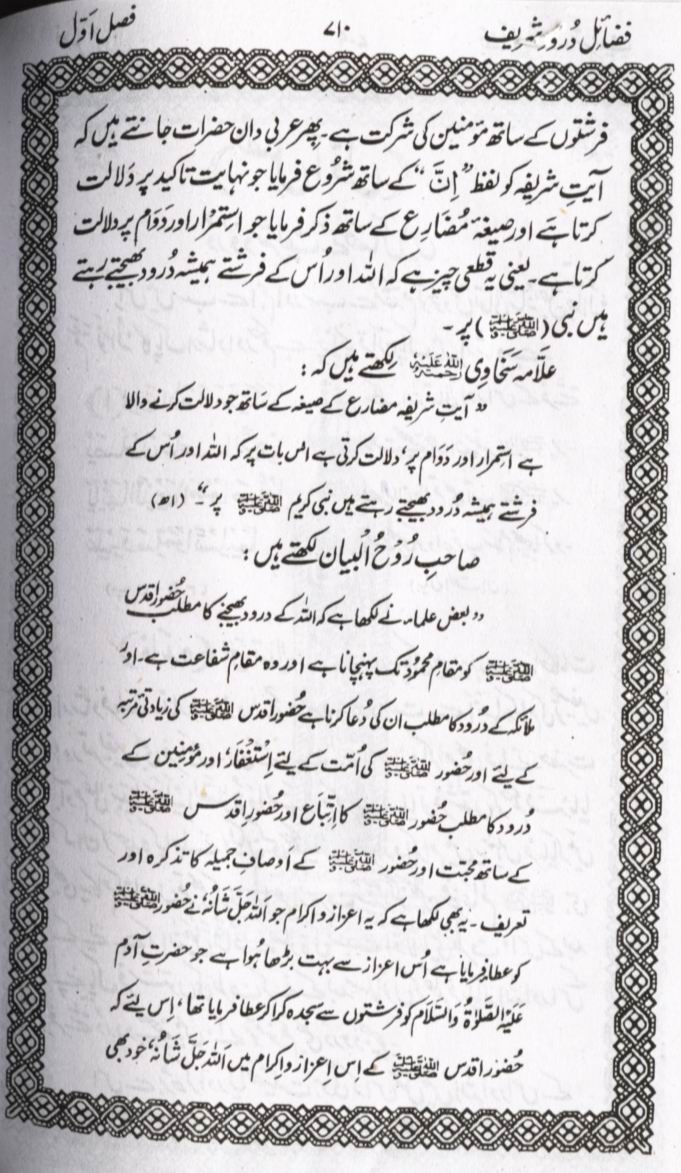 فضائل دُرود شریف ۷۱۰ فصل اوّل
فرشتوں کے ساتھ مؤمنین کی شرکت ہے۔ پھر عربی دان حضرات جانتے ہیں کہ
آیتِ شریفہ کو لفظ ”اِنَّ“ کے ساتھ شُروع فرمایا جو نہایت تاکید پر دَلالت
کرتا ہے اور صیغۂ مُضَارِع کے ساتھ ذکر فرمایا جو استمرار اور دَوَام پر دلالت
کرتا ہے۔ یعنی یہ قطعی چیز ہے کہ اللہ اور اُس کے فرشتے ہمیشہ دُرود بھیجتے رہتے
ہیں نبی (ﷺ) پر۔
علّامہ سَخَاوِی رَحْمَۃُ اللہِ عَلَیْہِ لکھتے ہیں کہ:
”آیتِ شریفہ مضارع کے صیغہ کے ساتھ جو دلالت کرنے والا
ہے استمرار اور دَوَام پر، دلالت کرتی ہے اس بات پر کہ اللہ اور اُس کے
فرشتے ہمیشہ دُرود بھیجتے رہتے ہیں نبی کریم ﷺ پر۔“ (اھ)
صاحبِ رُوحُ الْبیان لکھتے ہیں:
”بعض علماء نے لکھا ہے کہ اللہ کے درود بھیجنے کا مطلب حُضورِ اقدس
ﷺ کو مقامِ محمُود تک پہنچانا ہے اور وہ مقامِ شفاعت ہے۔ اور
ملائکہ کے دُرود کا مطلب ان کی دُعا کرنا ہے حُضورِ اقدس ﷺ کی زیادتی مرتبہ
کے لئے اور حُضور ﷺ کی اُمّت کے لئے اِستغفار، اور مؤمنین کے
دُرود کا مطلب حُضور ﷺ کا اِتّباع اور حُضورِ اقدس ﷺ
کے ساتھ محبّت اور حُضور ﷺ کے اَوصافِ جمیلہ کا تذکرہ اور
تعریف۔ یہ بھی لکھا ہے کہ یہ اعزاز و اکرام جو اللہ جَلَّ شَانُہٗ نے حُضور ﷺ
کو عطا فرمایا ہے اُس اعزاز سے بہت بڑھا ہُوا ہے جو حضرتِ آدم
عَلَیْہِ الصَّلٰوۃُ وَالسَّلَام کو فرشتوں سے سجدہ کرا کر عطا فرمایا تھا، اِس لئے کہ
حُضورِ اقدس ﷺ کے اِس اِعزاز و اِکرام میں اللہ جَلَّ شَانُہٗ، خود بھی